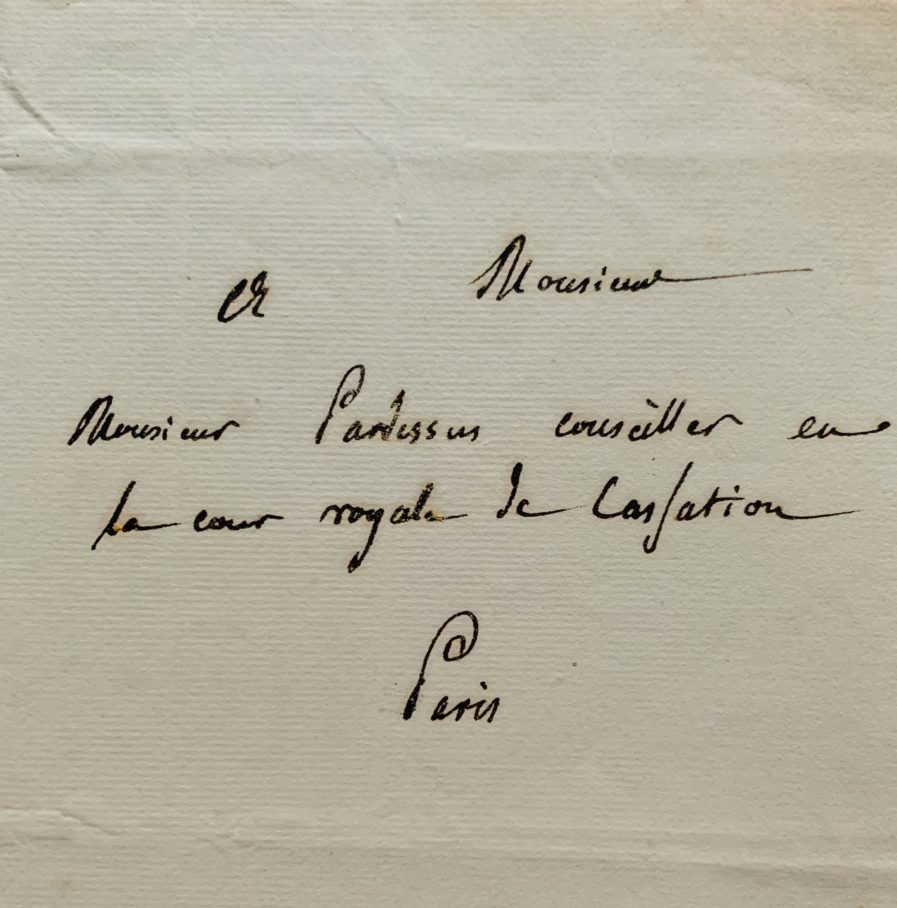 A Monsieur
Monsieur Pardessus conseiller en
la cour royale de Cassation
Paris